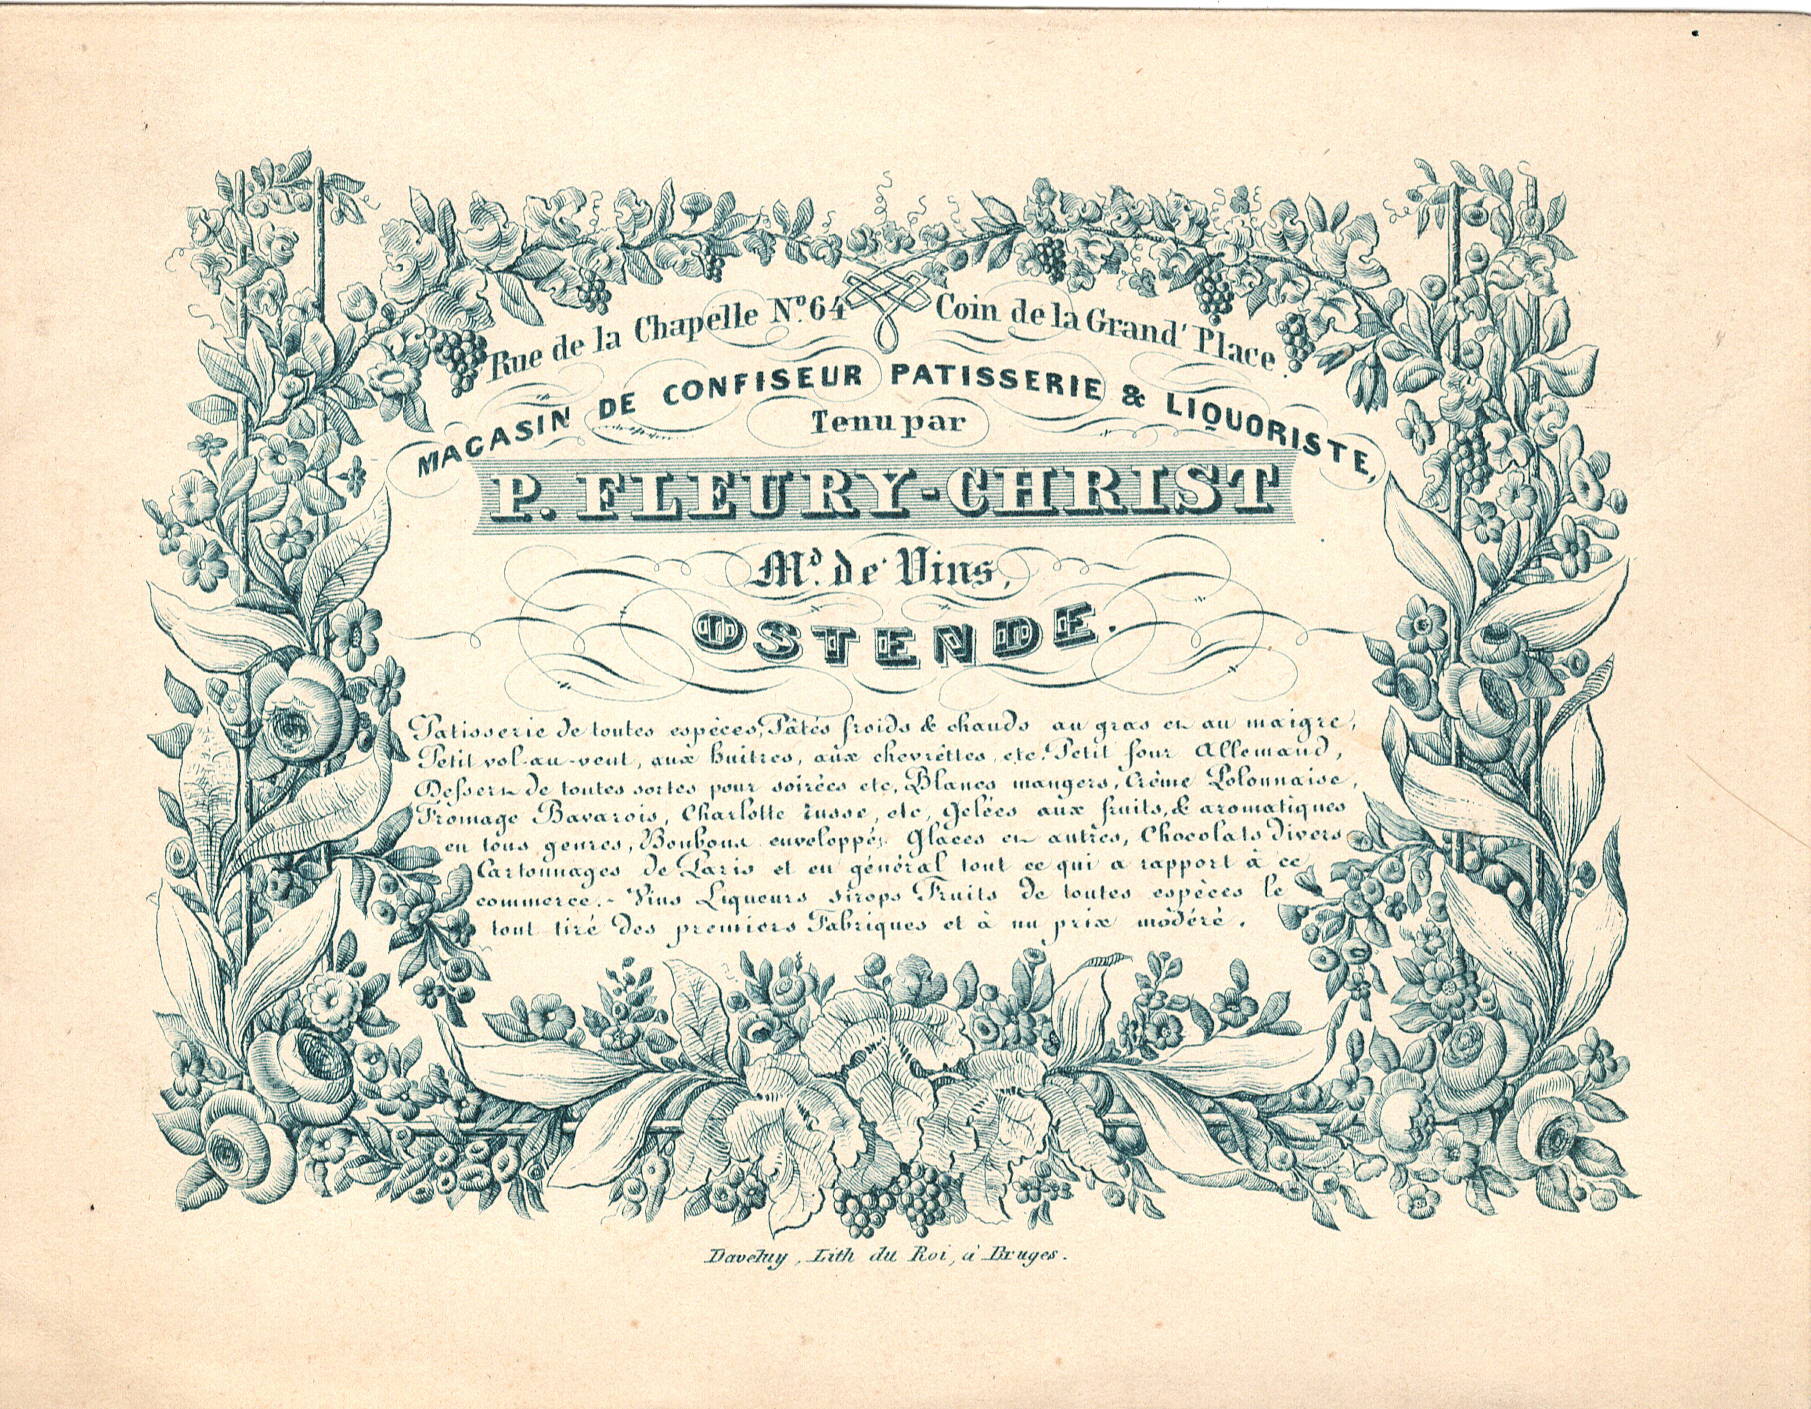 Rue de la Chapelle N.º 64 Coin de la Grand' Place.
MAGASIN DE CONFISEUR PATISSERIE & LIQUORISTE,
Tenu par
P. FLEURY-CHRIST
M.d de Vins,
OSTENDE.
Patisserie de toutes espèces, Pâtés froids & chauds au gras et au maigre,
Petit vol-au-vent, aux huitres, aux chevrêttes, etc. Petit four Allemand,
Dessert de toutes sortes pour soirées etc, Blancs mangers, Crème Polonnaise,
Fromage Bavarois, Charlotte russe, etc, Gelées aux fruits, & aromatiques
en tous genres, Bonbons enveloppés Glaces et autres, Chocolats divers
Cartonnages de Paris et en général tout ce qui a rapport à ce
commerce. - Vins Liqueurs sirops Fruits de toutes espèces le
tout tiré des premiers Fabriques et à un prix modéré.
Daveluy, Lith du Roi, à Bruges.